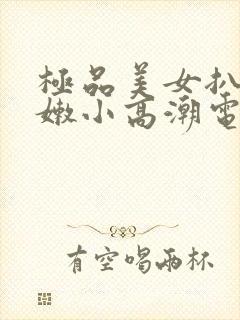 極品美女扒
嫩小高潮電
有空喝兩杯